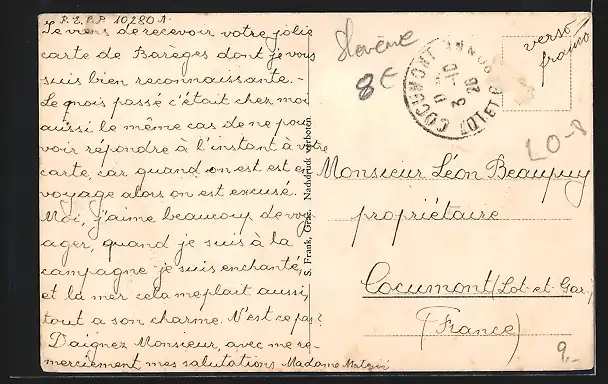 P.E.P.P. 10280 A.
Je viens de recevoir votre jolie
carte de Barèges dont je vous
suis bien reconnaissante. -
Le mois passé c'était chez moi
aussi le même cas de ne pou-
voir répondre à l'instant à votre
carte, car quand on est est en
voyage alors on est excusé.
Moi, j'aime beaucoup de voy-
ager, quand je suis à la
campagne je suis enchanté,
et la mer cela me plait aussi,
tout a son charme. N'est ce pas?
Daignez Monsieur, avec me re-
merciement mes salutations Madame
S. Frank, Graz. Nachdruck verboten
8€
COCUMONT
LOT ET G
verso
franco
LO-8
Monsieur Léon Beaupuy
propriétaire
Cocumont (Lot-et-Gar.)
(France)
9,-